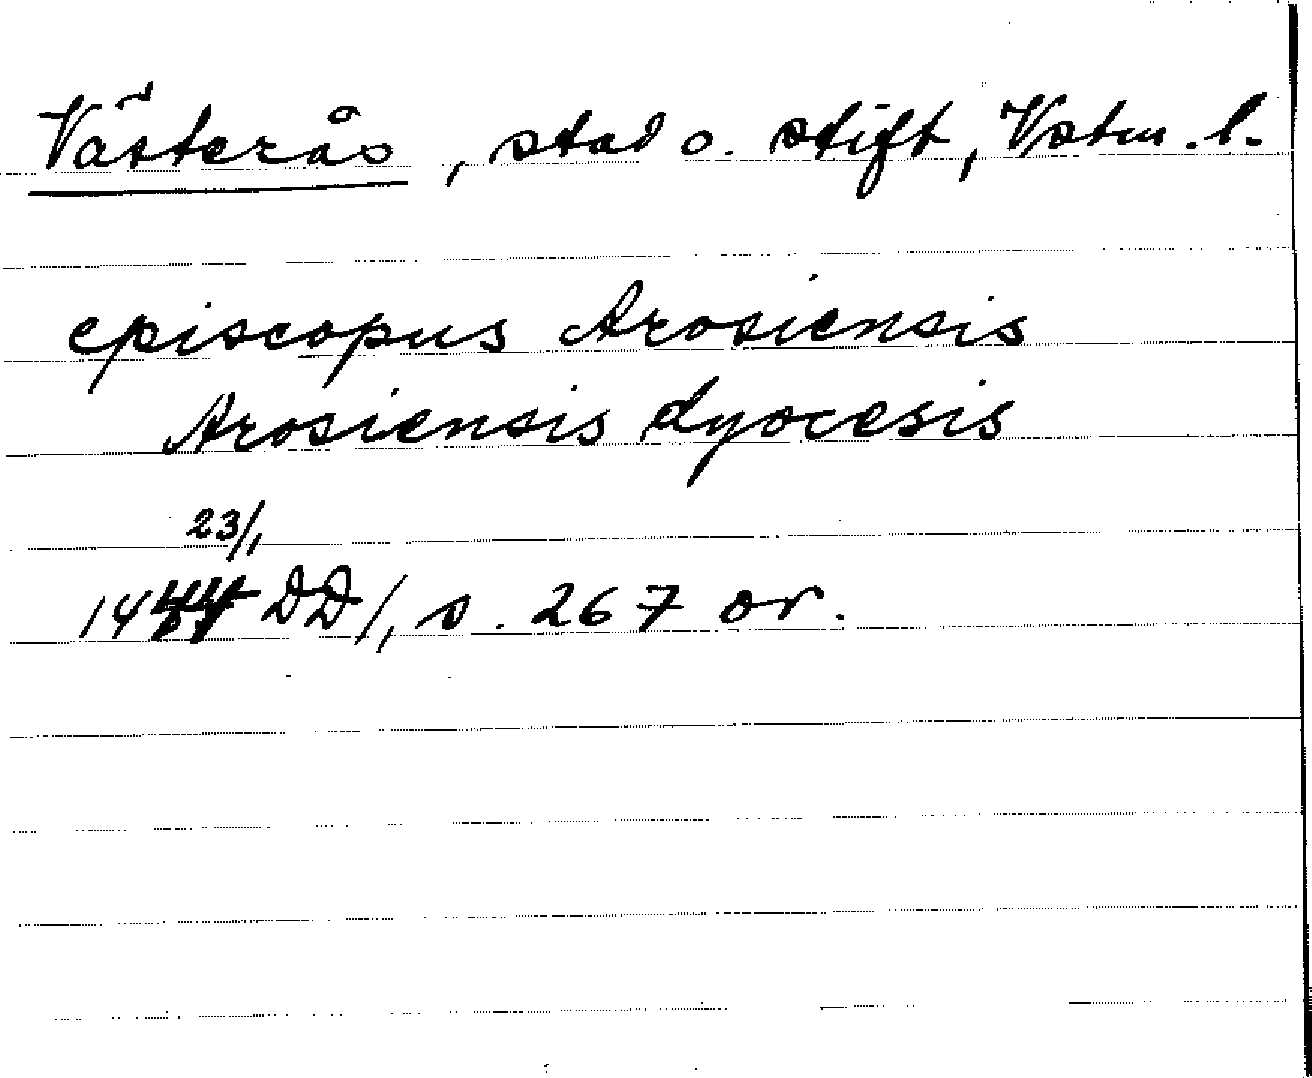 Västerås, stad o. stift, Vstm. l.
episcopus Arosiensis
Arosiensis dyocesis
23/1
DD 1, s. 267 or.